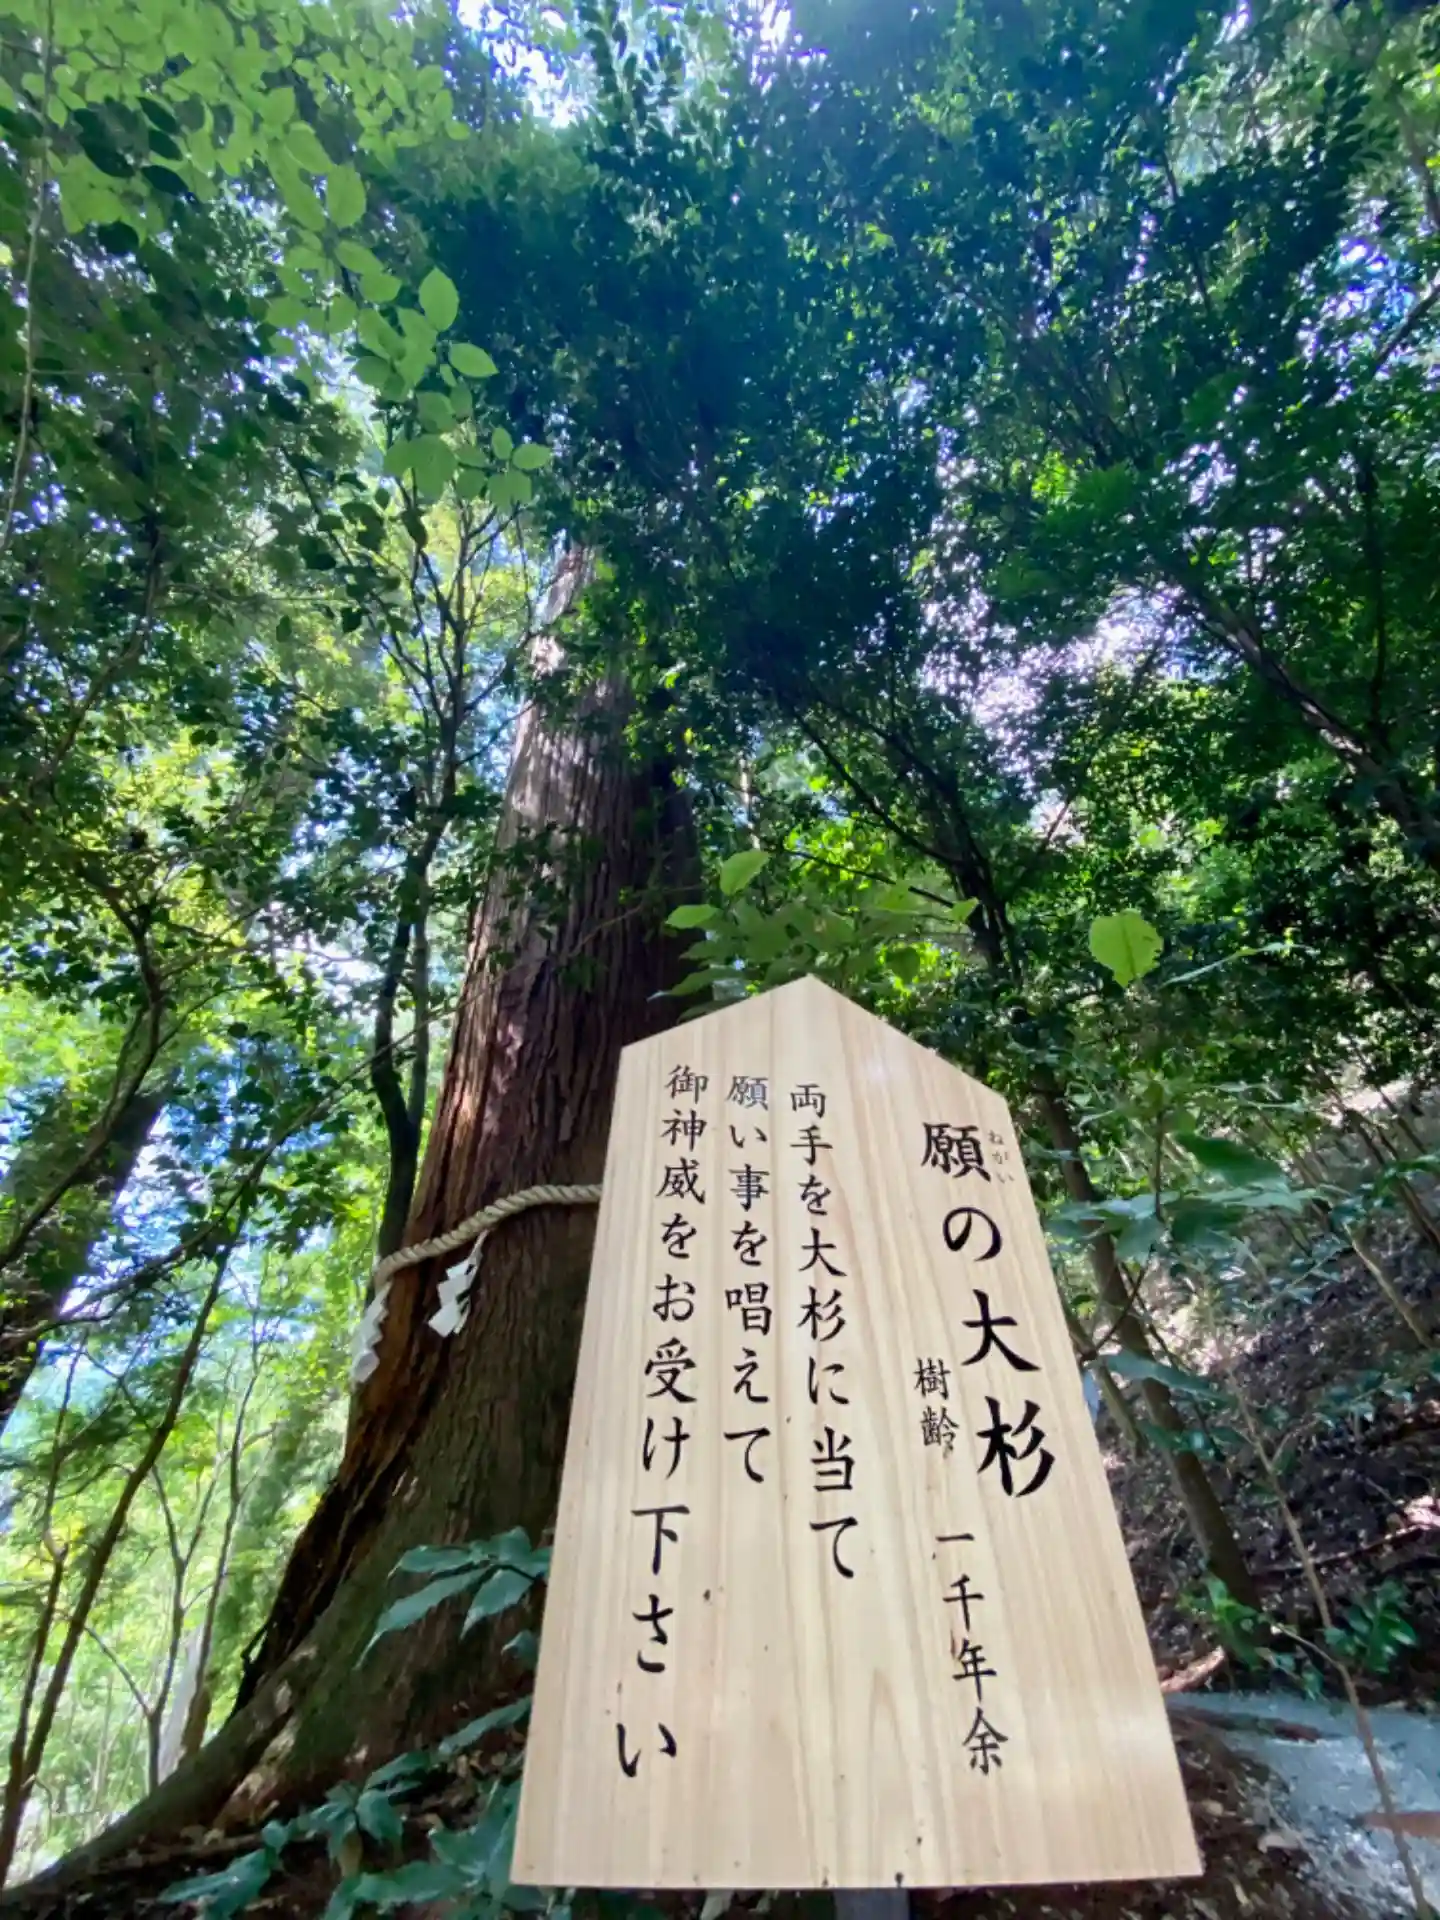 願の大杉
ねがい
樹齢 一千年余
両手を大杉に当て
願い事を唱えて
御神威をお受け下さい